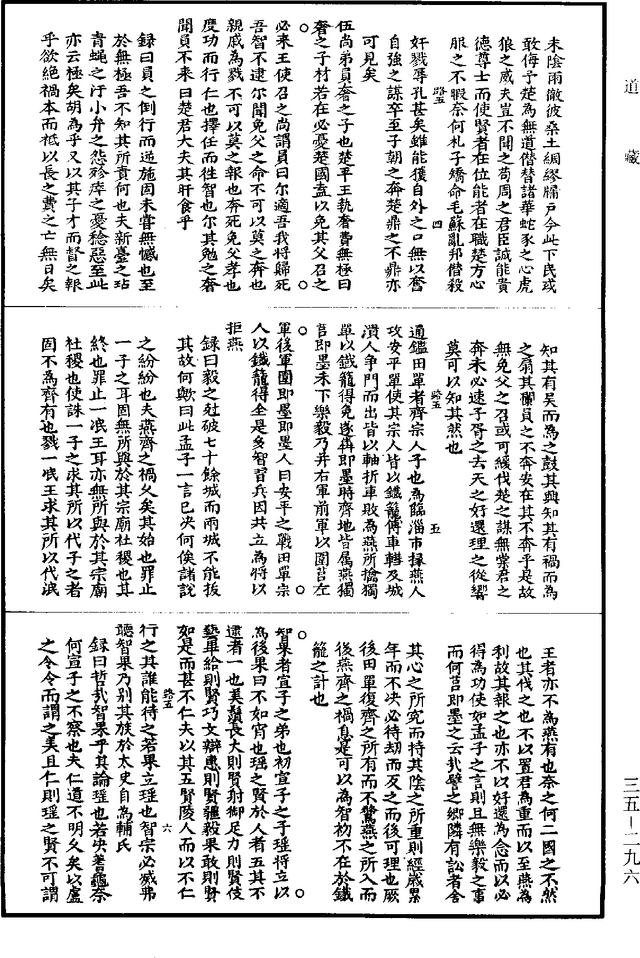 道藏
未陰雨徹彼桑土綢繆牖戶今此下民或
敢侮予楚為無道僭替諸華蛇豕之心虎
狼之威夫豈不聞之苟周之君臣誠能貴
德尊士而使賢者在位能者在職楚方心
服之不暇奈何札子矯命毛蘇亂邦僭殺
路五 四
奸戮辱孔甚矣雖能獲自外之口無以奮
自強之謀卒至子朝之奔楚鼎之不鼎亦
可見矣
伍尚弟員奢之子也楚平王執奢費無極曰
奢之子材若在必憂楚國盍以免其父召之
必來王使召之尚謂員曰尔適吾我將歸死
吾智不逮尔聞免父之命不可以莫之奔也
親戚為戮不可以莫之報也奔死免父孝也
度功而行仁也擇任而往智也尔其勉之奢
聞員不來曰楚君大夫其旰食乎
錄曰員之倒行而逆施固未嘗無憾也至
於無極吾不知其所責何也夫新臺之玷
青蠅之汙小弁之怨殄瘁之憂稔惡至此
亦云極矣胡為乎又以其子才而督之報
乎欲絕禍本而祗以長之費之亡無日矣
知其有吳而為之鼓其興知其有禍而為
之翦其欄員之不奔安在其不奔乎是故
無免父之召或可緩伐楚之謀無棠君之
奔未必速子胥之去天之好還理之從響
莫可以知其然也
路五 五
通鑑田單者齊宗人子也為臨淄市掾燕人
攻安平單使其宗人皆以鐵籠傅車轊及城
潰人爭門而出皆以軸折車敗為燕所擒獨
單以鐵籠得免遂犇即墨時齊地皆屬燕獨
莒即墨未下樂毅乃并右軍前軍以圍莒左
軍後軍圍即墨即墨人曰安平之戰田單宗
人以鐵籠得全是多智習兵因共立為將以
拒燕
錄曰毅之尅破七十餘城而兩城不能拔
其故何歟曰此孟子一言已決何俟諸說
之紛紛也夫燕齊之禍久矣其始也罪止
一子之耳固無所與於其宗廟社稷也其
終也罪止一湣王耳亦無所與於其宗廟
社稷也使誅一子之求其所以代子之者
固不為齊有也戮一湣王求其所以代湣
王者亦不為燕有也奈之何二國之不然
也其伐之也不以置君為重而以至燕為
利故其報之也亦不以好還為念而以必
得為功使如孟子之言則且無樂毅之事
而何莒即墨之云哉譬之鄉隣有訟者舍
其心之所究而持其陰之所重則經歲累
年而不決必待劫而反之而後可理也厥
後田單復齊之所有而不驚燕之所入而
後燕齊之禍息是可以為智初不在於鐵
籠之計也
智果者宣子之弟也初宣子之子瑤將立以
為後果曰不如宵也瑤之賢於人者五其不
逮者一也美鬚長大則賢射御足力則賢伎
藝畢給則賢巧文辯惠則賢疆毅果敢則賢
如是而甚不仁夫以其五賢陵人而以不仁
路五 六
行之其誰能待之若果立瑤也智宗必滅弗
聽智果乃別其族於太史自為輔氏
錄曰哲哉智果乎其論瑤也若決蓍龜奈
何宣子之不察也夫仁道不明久矣以盧
之令令而謂之美且仁則瑤之賢不可謂
三五—二九六